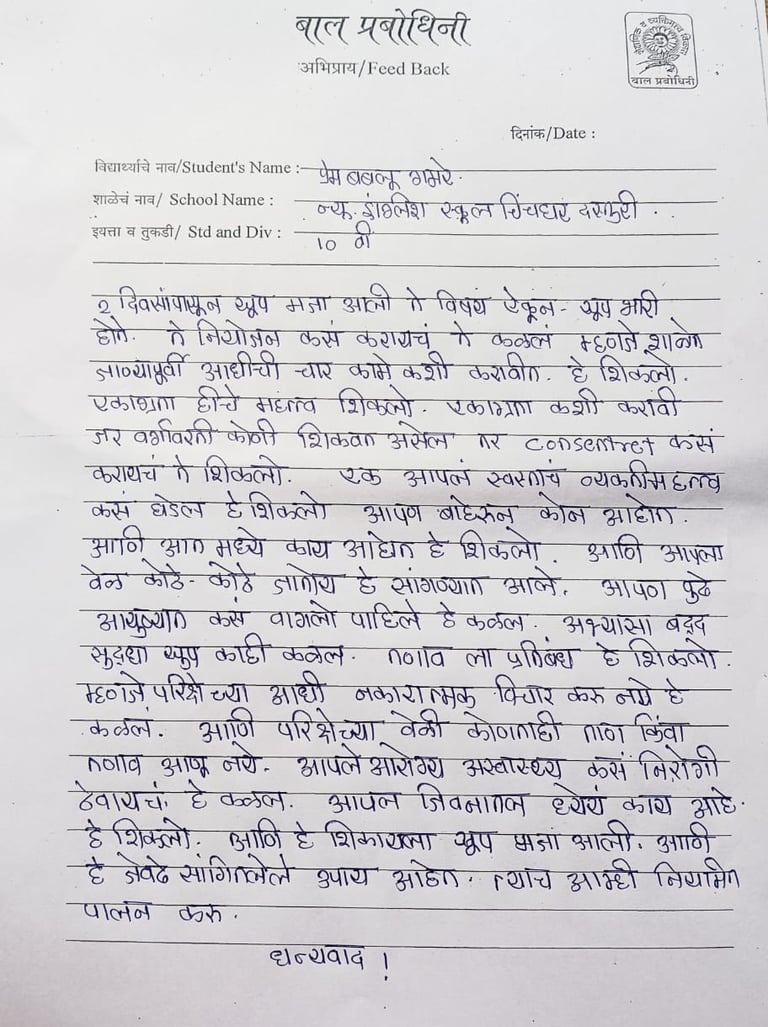 बाल प्रबोधिनी
अभिप्राय/Feed Back
बाल प्रबोधिनी
दिनांक/Date :
विद्यार्थ्याचे नाव/Student's Name : प्रेम बबलू गमरे.
शाळेचं नाव/ School Name : न्यू. इंग्लिश स्कूल चिंचघर दस्तुरी .
इयत्ता व तुकडी/ Std and Div : 10 वी
२ दिवसांपासून खूप मजा आली ते विषय ऐकून - खूप भारी
होते. ते नियोजन कसं करायचं ते कळलं म्हणजे शाळेत
जाण्यापूर्वी आधीची चार कामे कशी करावीत. हे शिकलो.
एकाग्रता हीचे महत्त्व शिकलो. एकाग्रता कशी करावी
जर वर्गावरती कोणी शिकवत असेल तर consentret कसं
करायचं ते शिकलो. एक आपलं स्वताचं व्यक्तीमहत्त्व
कसं घडेल हे शिकलो आपण बाहेरून कोन आहोत.
आणि आत मध्ये काय आहोत हे शिकलो. आणि आपला
वेळ कोठे-कोठे जातोय हे सांगण्यात आले. आपण पुढे
आयुष्यात कसं वागलो पाहिले हे कळल. अभ्यासा बद्द्द
सुद्धा खूप काही कळल. तणाव ला प्रतिबंध हे शिकलो.
म्हणजे परिक्षे च्या आधी नकारात्मक विचार करु नये हे
कळलं. आणि परिक्षेच्या वेळी कोणताही ताण किंवा
तणाव आणू नये. आपले आरोग्य अस्वास्थ्य कसं निरोगी
ठेवायचं हे कळल. आपल जिवनातल ध्येयं काय आहे.
हे शिकलो. आणि हे शिकायला खूप मजा आली. आणि
हे जेवढे सांगितलेले उपाय आहेत. त्याच आम्ही नियमित
पालन करु.
धन्यवाद !